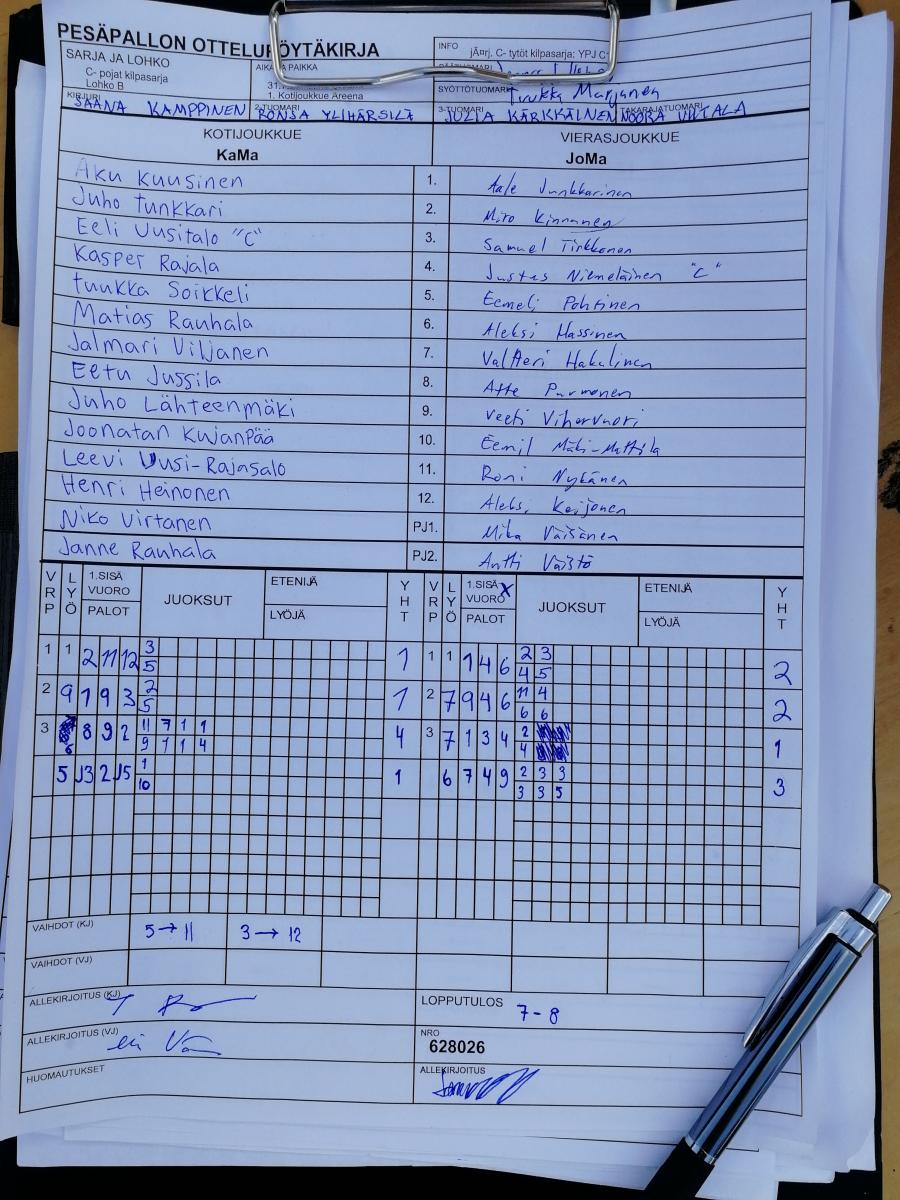 PESÄPALLON OTTELUPÖYTÄKIRJA
SARJA JA LOHKO
C- pojat kilpasarja
Lohko B
AIKA JA PAIKKA
31.
1. Kotijoukkue Areena
INFO
jÄ¤rj. C- tytöt kilpasarja: YPJ C
SYÖTTÖTUOMARI Tuukka Marjanen
KIRJURI SAANA KAMPPINEN 2-TUOMARI RONJA YLIHÄRSILÄ 3-TUOMARI JULIA KÄRKKÄINEN TAKARAJATUOMARI NOORA UHTALA
KOTIJOUKKUE VIERASJOUKKUE
KaMa JoMa
Aku Kuusinen 1. Aale Junkkarinen
Juho Tunkkari 2. Miro Kinnunen
Eeli Uusitalo "C" 3. Samuel Tirkkonen
Kasper Rajala 4. Justus Niemeläinen "C"
Tuukka Soikkeli 5. Eemeli Pohtinen
Matias Rauhala 6. Aleksi Hassinen
Jalmari Viljanen 7. Valtteri Hakulinen
Eetu Jussila 8. Atte Purmonen
Juho Lähteenmäki 9. Veeti Vihervuori
Joonatan Kujanpää 10. Eemil Mäki-Mattila
Leevi Uusi-Rajasalo 11. Roni Nykänen
Henri Heinonen 12. Aleksi Keijonen
Niko Virtanen PJ1. Mika Väisänen
Janne Rauhala PJ2. Antti Väistö
VRP LYÖ 1.SISÄ VUORO PALOT JUOKSUT ETENIJÄ LYÖJÄ YHT VRP LYÖ 1.SISÄ VUORO X PALOT JUOKSUT ETENIJÄ LYÖJÄ YHT
1 1 2 11 12 3 1 1 1 1 4 6 2 3 2
5 4 5
2 9 1 9 3 2 1 2 7 9 4 6 11 4 2
5 6 6
3 6 8 9 2 11 7 1 1 4 3 7 1 3 4 2 1
9 1 1 4 4
5 J3 2 J5 1 1 6 7 4 9 2 3 3 3
10 3 3 5
VAIHDOT (KJ) 5→11 3→12
VAIHDOT (VJ)
ALLEKIRJOITUS (KJ) LOPPUTULOS 7-8
ALLEKIRJOITUS (VJ) NRO
628026
HUOMAUTUKSET ALLEKIRJOITUS